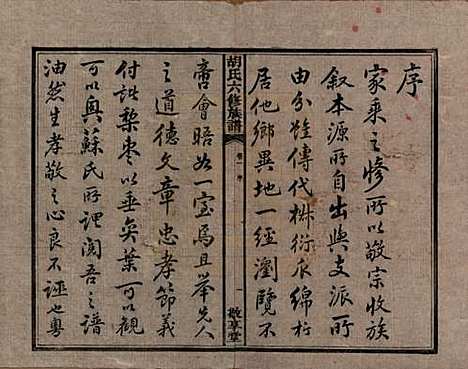 序
家乘之修所以敬宗收族
叙本源所自出與支派所
由分雖傳代椒衍瓜綿析
居他鄉異地一經瀏覽不
胡氏六修族譜
卷一 序
一
敬享堂
啻會晤如一室焉且舉先人
之道德文章忠孝節義
付諸棃枣以垂奕葉可以觀
可以興蘇氏所謂閱吾之譜
油然生孝敬之心良不誣也粤